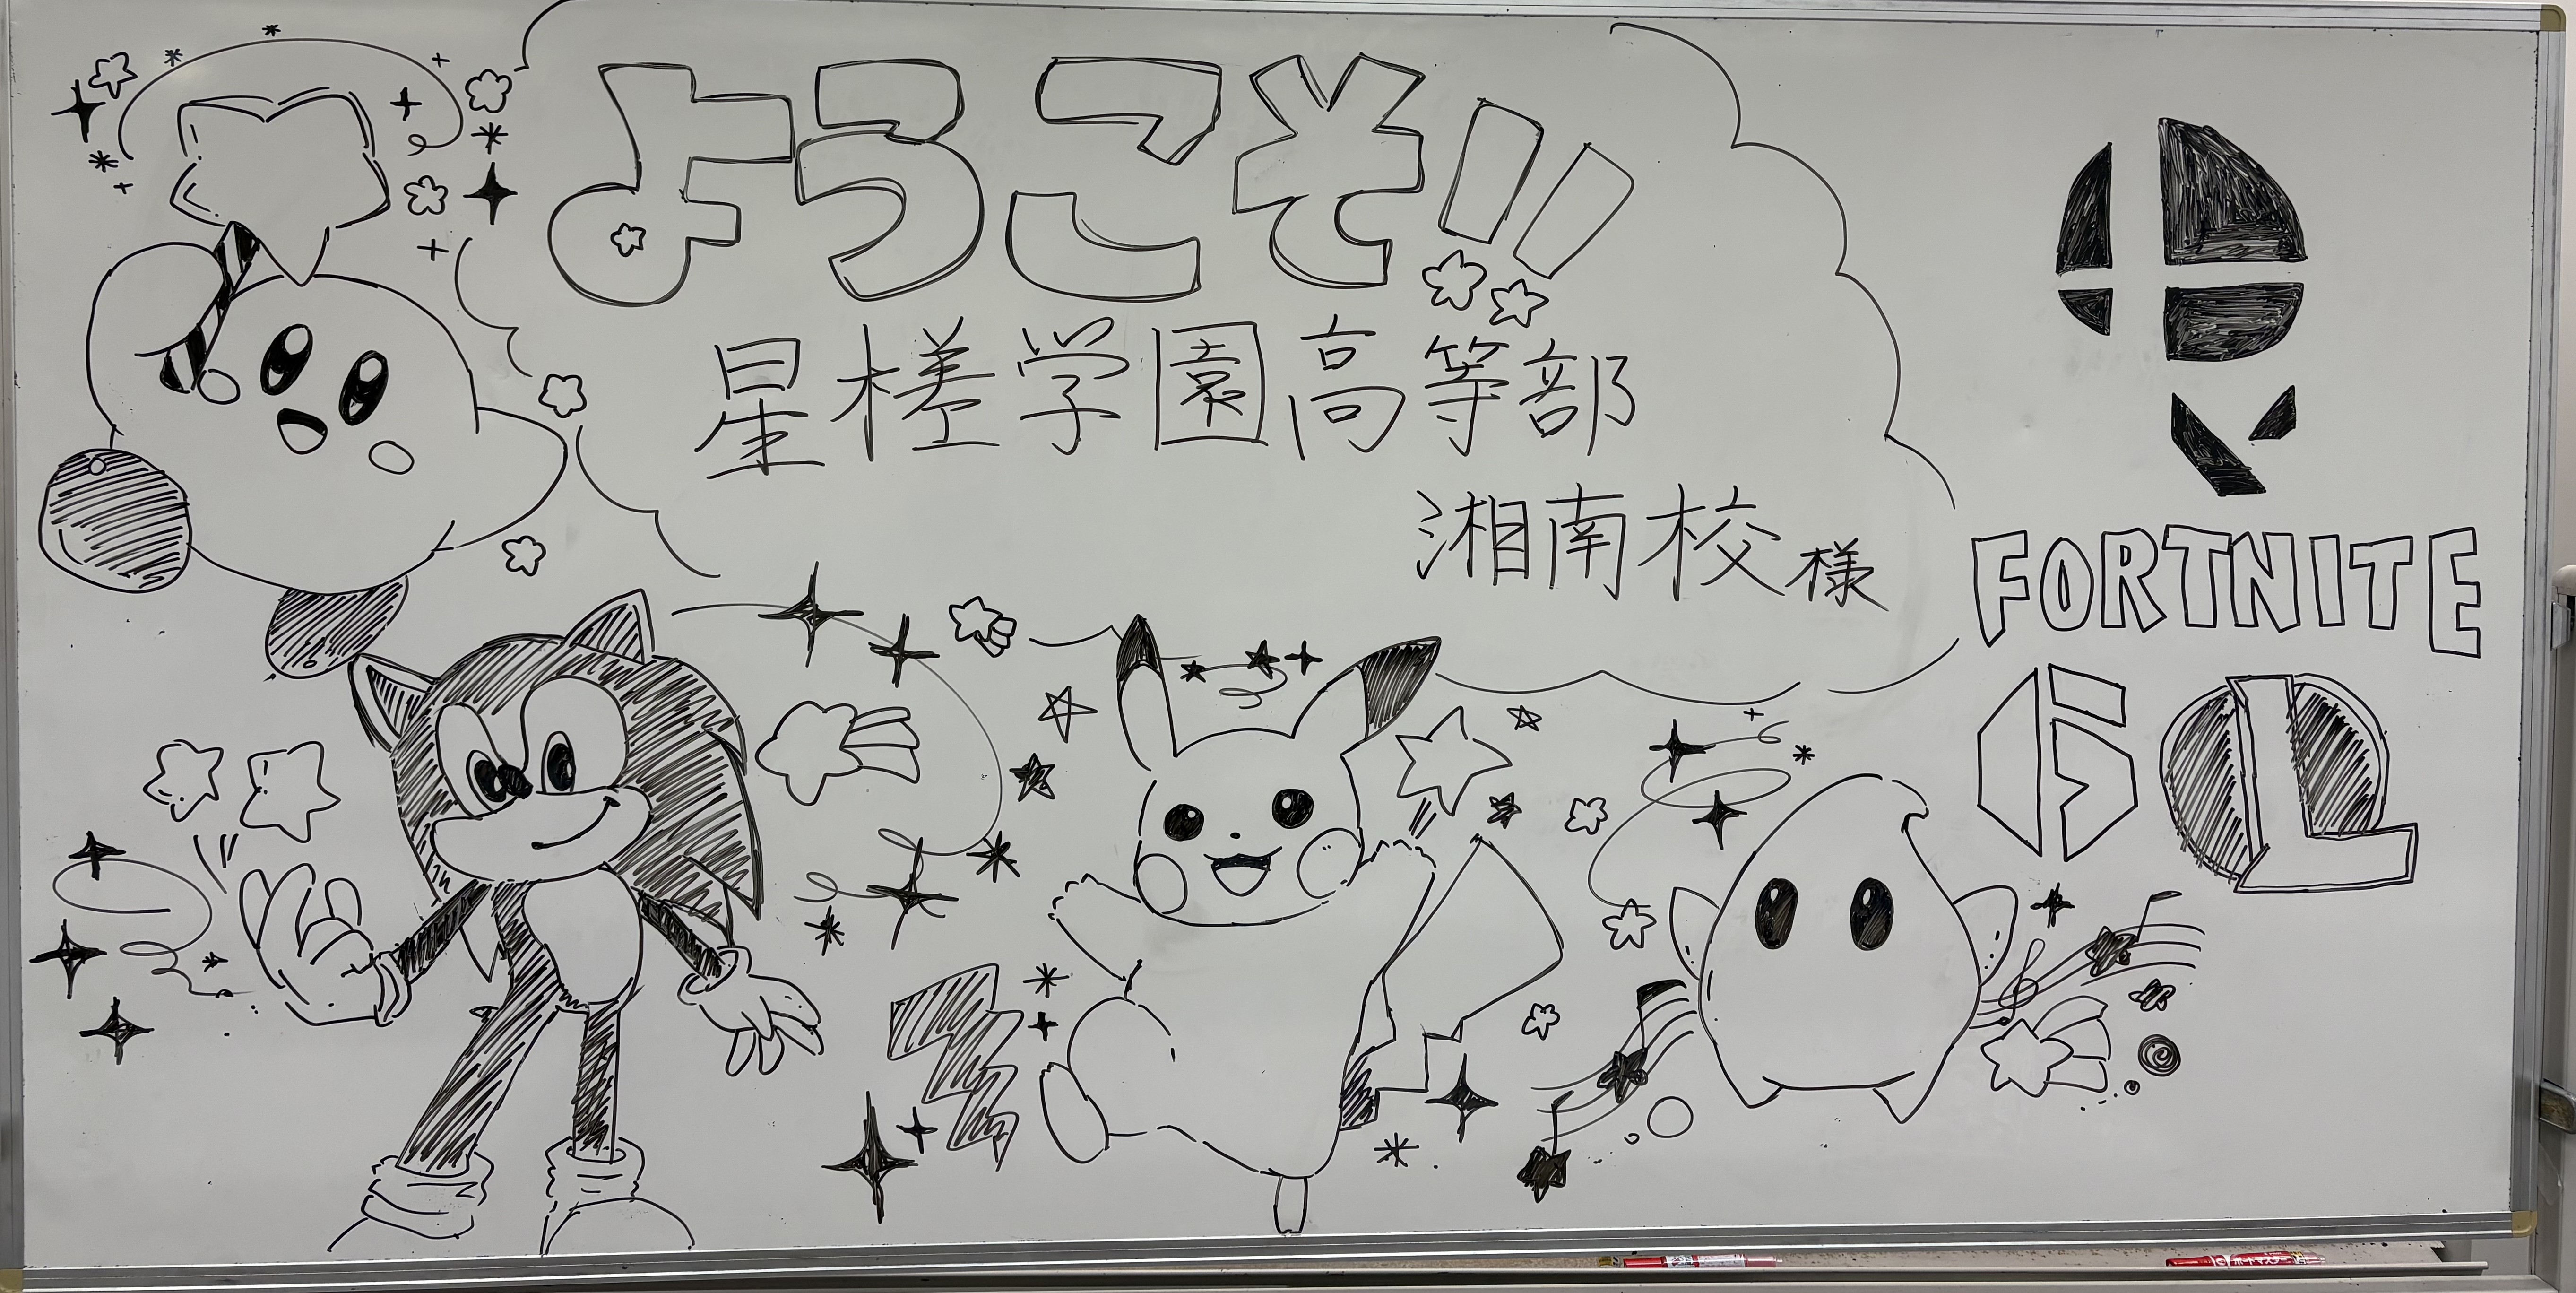 ようこそ!!
星槎学園高等部
湘南校様
FORTNITE
L